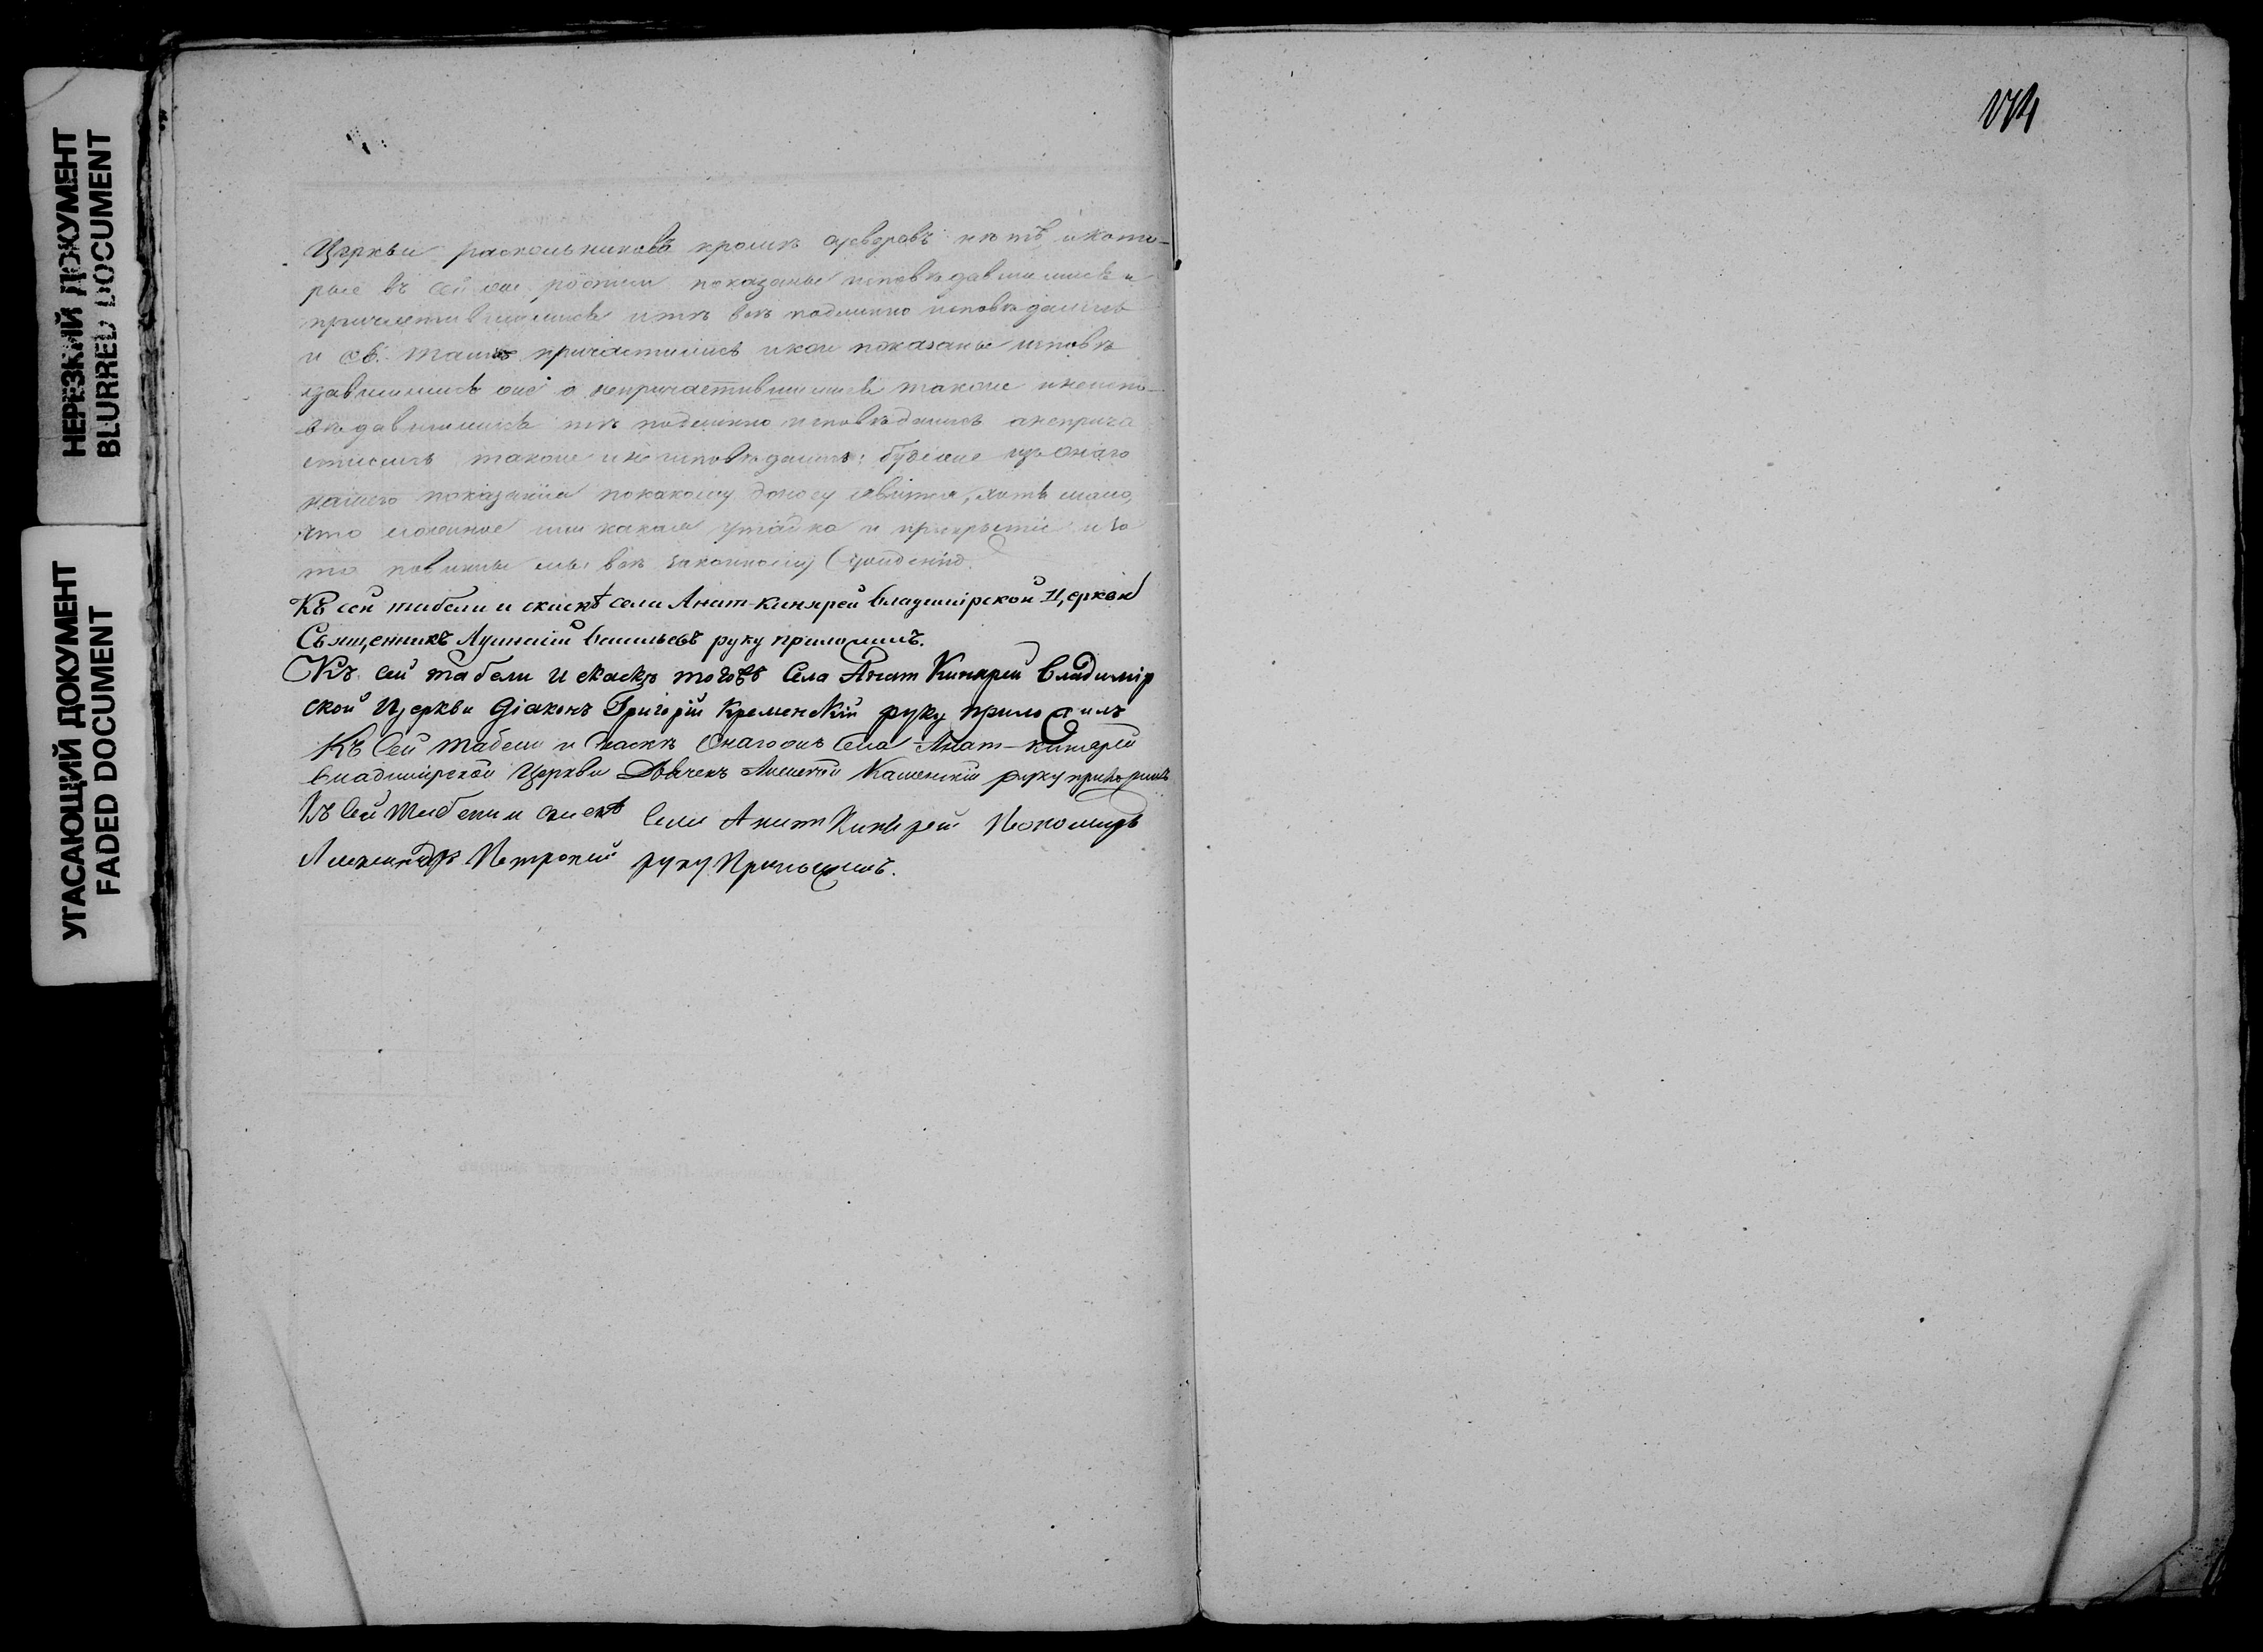 НЕРЕЗКИЙ ДОКУМЕНТ
BLURRED DOCUMENT
УГАСАЮЩИЙ ДОКУМЕНТ
FADED DOCUMENT
Церкви раскольниковъ кромѣ нѣтъ, и кото-
рые въ сей же росписи показаны исповѣдавшимися и
причастившимися и тѣ всѣ подлинно исповѣдались
и св. таинъ причастились и кои показаны исповѣ
давшимись же а непричастившимися также и неиспо-
вѣдавшимися тѣ подлинно исповѣдались а неприча
стились также и не исповѣдались; будеже изъ онаго
нашего показанія по какому доносу явится, хотя мало,
что ложное или какая утайка и прикрытіе и за
то повинны мы всѣ законному сужденію.
Къ сей табели и скаскѣ села Анат-Кинярей Владимірской Церкви
Священникъ Васильевъ руку приложилъ.
Къ сей табели и скаскѣ тогожъ Села Анат Кинярей Владимір
ской Церкви Діаконъ Григорій Кременскій руку приложилъ
Къ сей табели и скаскѣ онагожъ села Анат-Кинярей
Владимірской Церкви Дьячекъ Алексѣй Каменскій руку приложилъ
Къ сей табели и скаскѣ села Анат Кинярей Пономарь
Александръ Петровскій руку приложилъ.